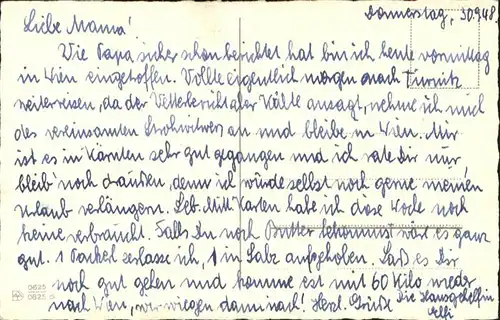 Donnerstag, 30.9.48
Liebe Mama!
Wie Papa sicher schon berichtet hat bin ich heute vormittag
in Wien eingetroffen. Wollte eigentlich morgen nach Türnitz
weiterreisen, da der Wetterbericht aber Kälte ansagt, nehme ich mich
des vereinsamten Strohwitwers an und bleibe in Wien. Mir
ist es in Kärnten sehr gut gegangen und ich rate Dir nur,
bleib noch draußen, denn ich würde selbst noch gerne meinen
Urlaub verlängern. Leb. Mitt. Karten habe ich diese Woche noch
keine verbraucht. Falls Du noch Butter bekommst wär es ganz
gut. 1 Packerl zerlasse ich, 1 in Salz aufgehoben. Laß es Dir
noch gut gehen und komme erst mit 60 Kilo wieder
nach Wien, wir wiegen dann nach! Herzl. Grüße Die Hausgehilfin
Elli
0625